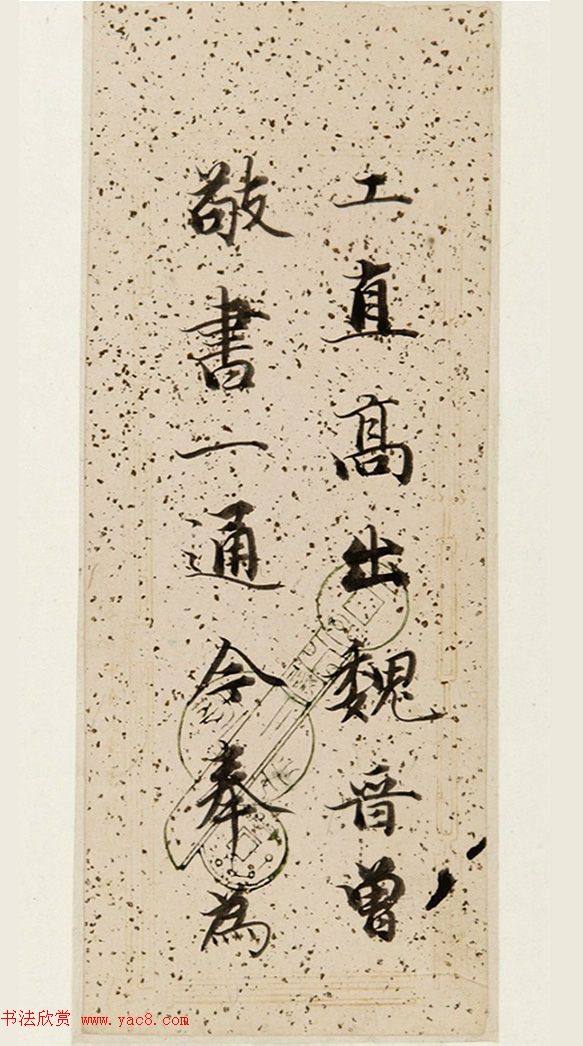 工直高出魏晋曾
敬書一通今奉為
书法欣赏 www.yac8.com